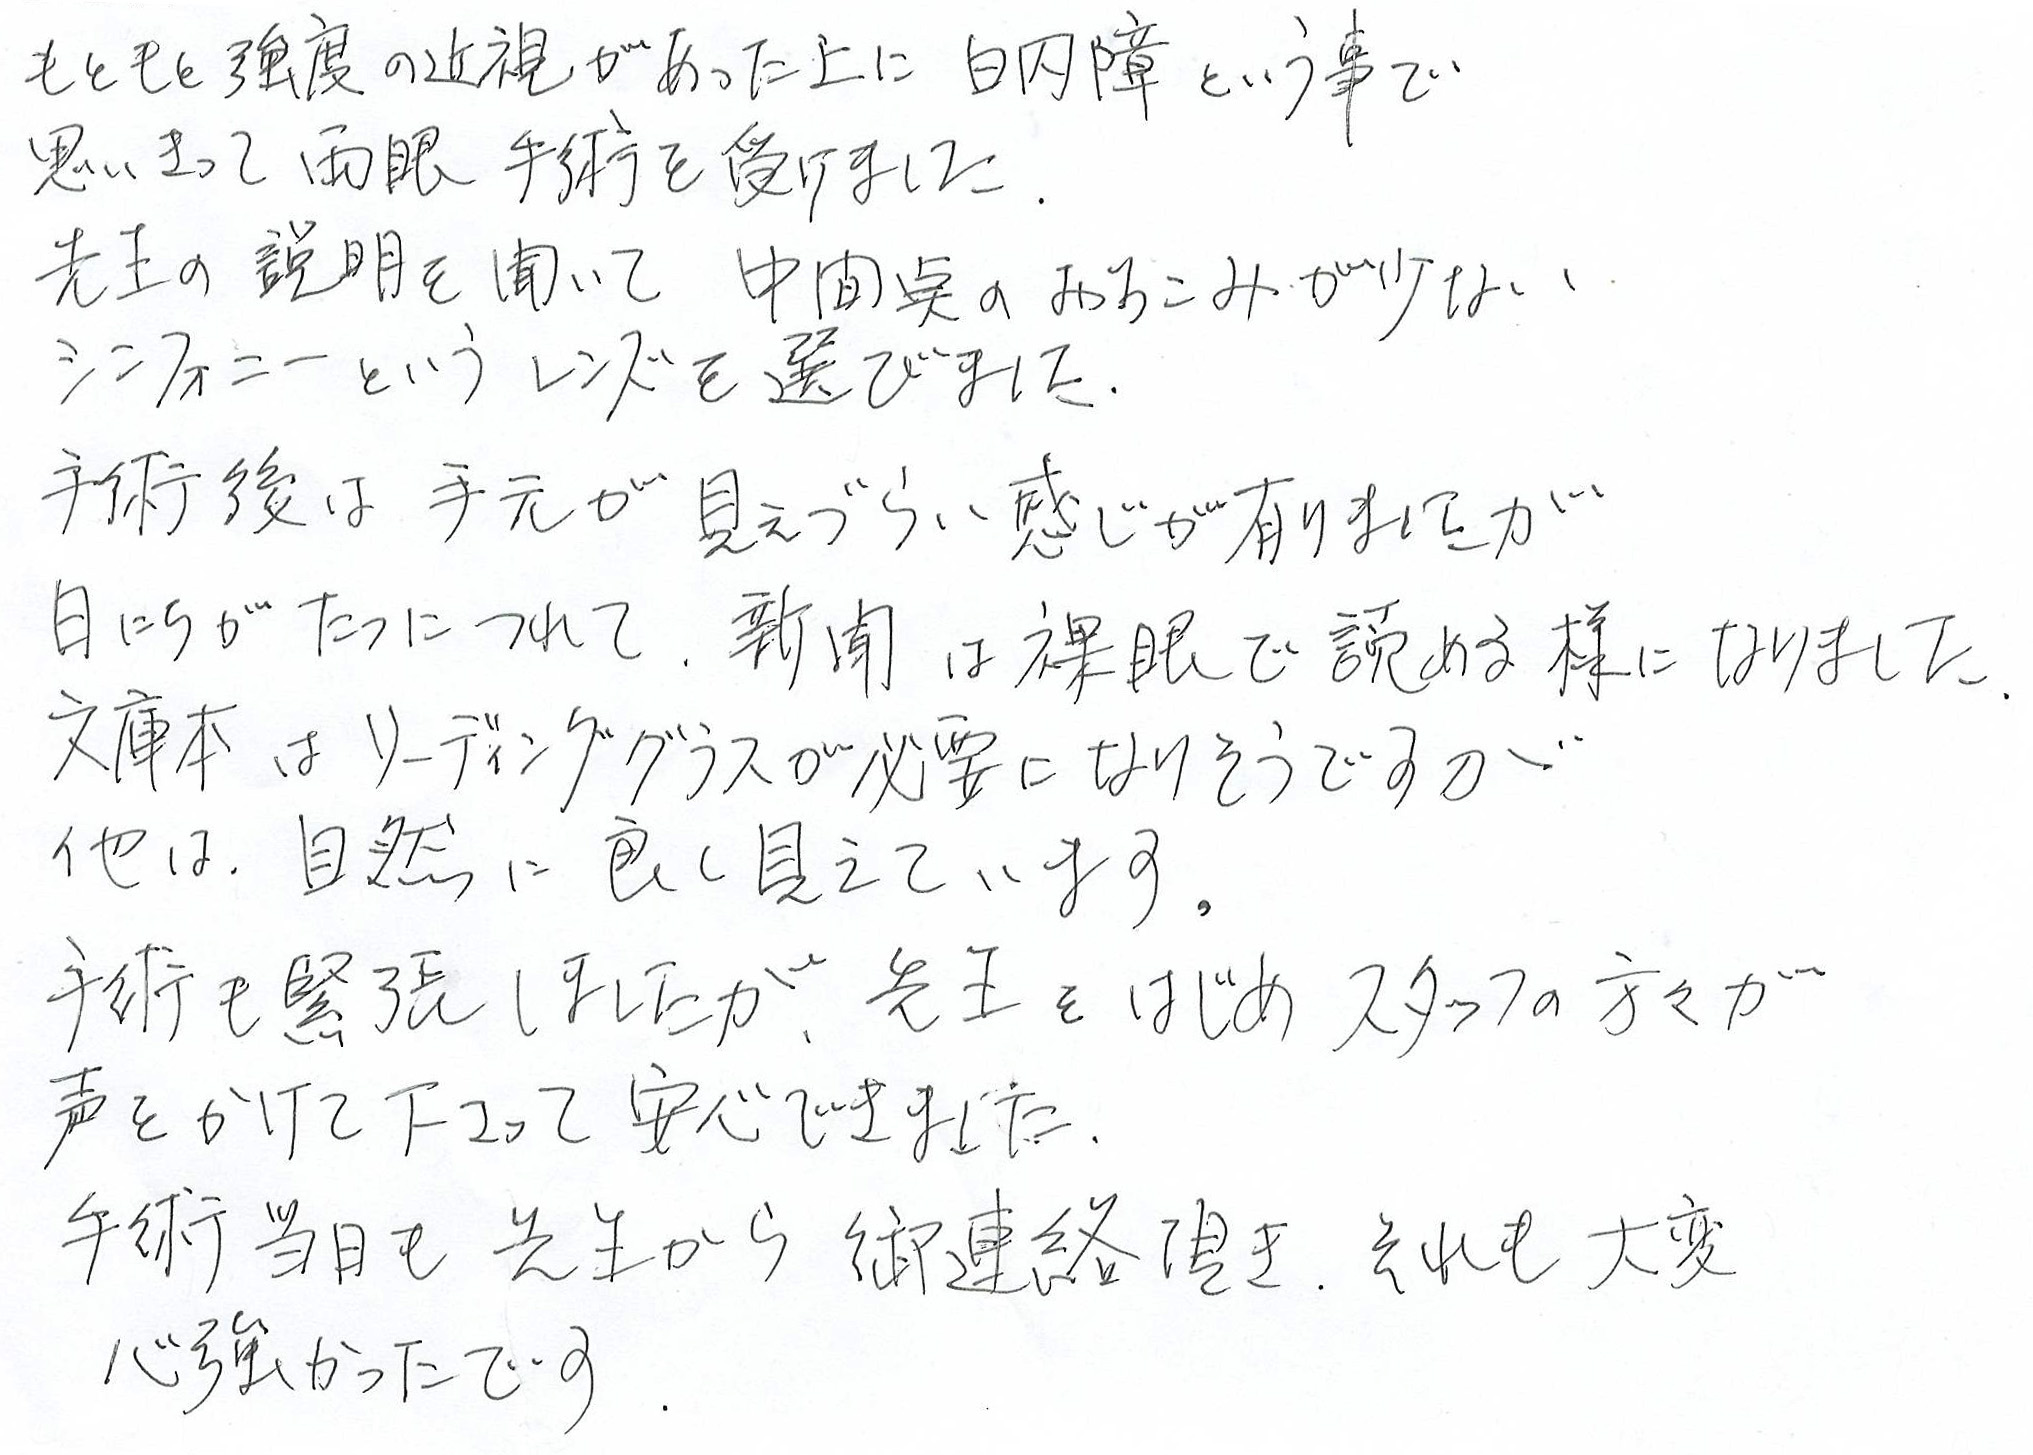 もともと強度の近視があった上に 白内障という事で
思いきって両眼 手術を受けました.
先生の 説明を聞いて 中間点のおちこみが少ない
シンフォニーという レンズを選びました.
手術後は 手元が 見えづらい感じが有りましたが
日にちが たつにつれて、新聞は裸眼で読める様になりました.
文庫本はリーディンググラスが必要になりそうですが
他は、自然に良く見えています。
手術も緊張しましたが、先生をはじめ スタッフの方々が
声をかけて下さって安心できました.
手術当日も 先生から 御連絡頂き、それも大変
心強かったです.